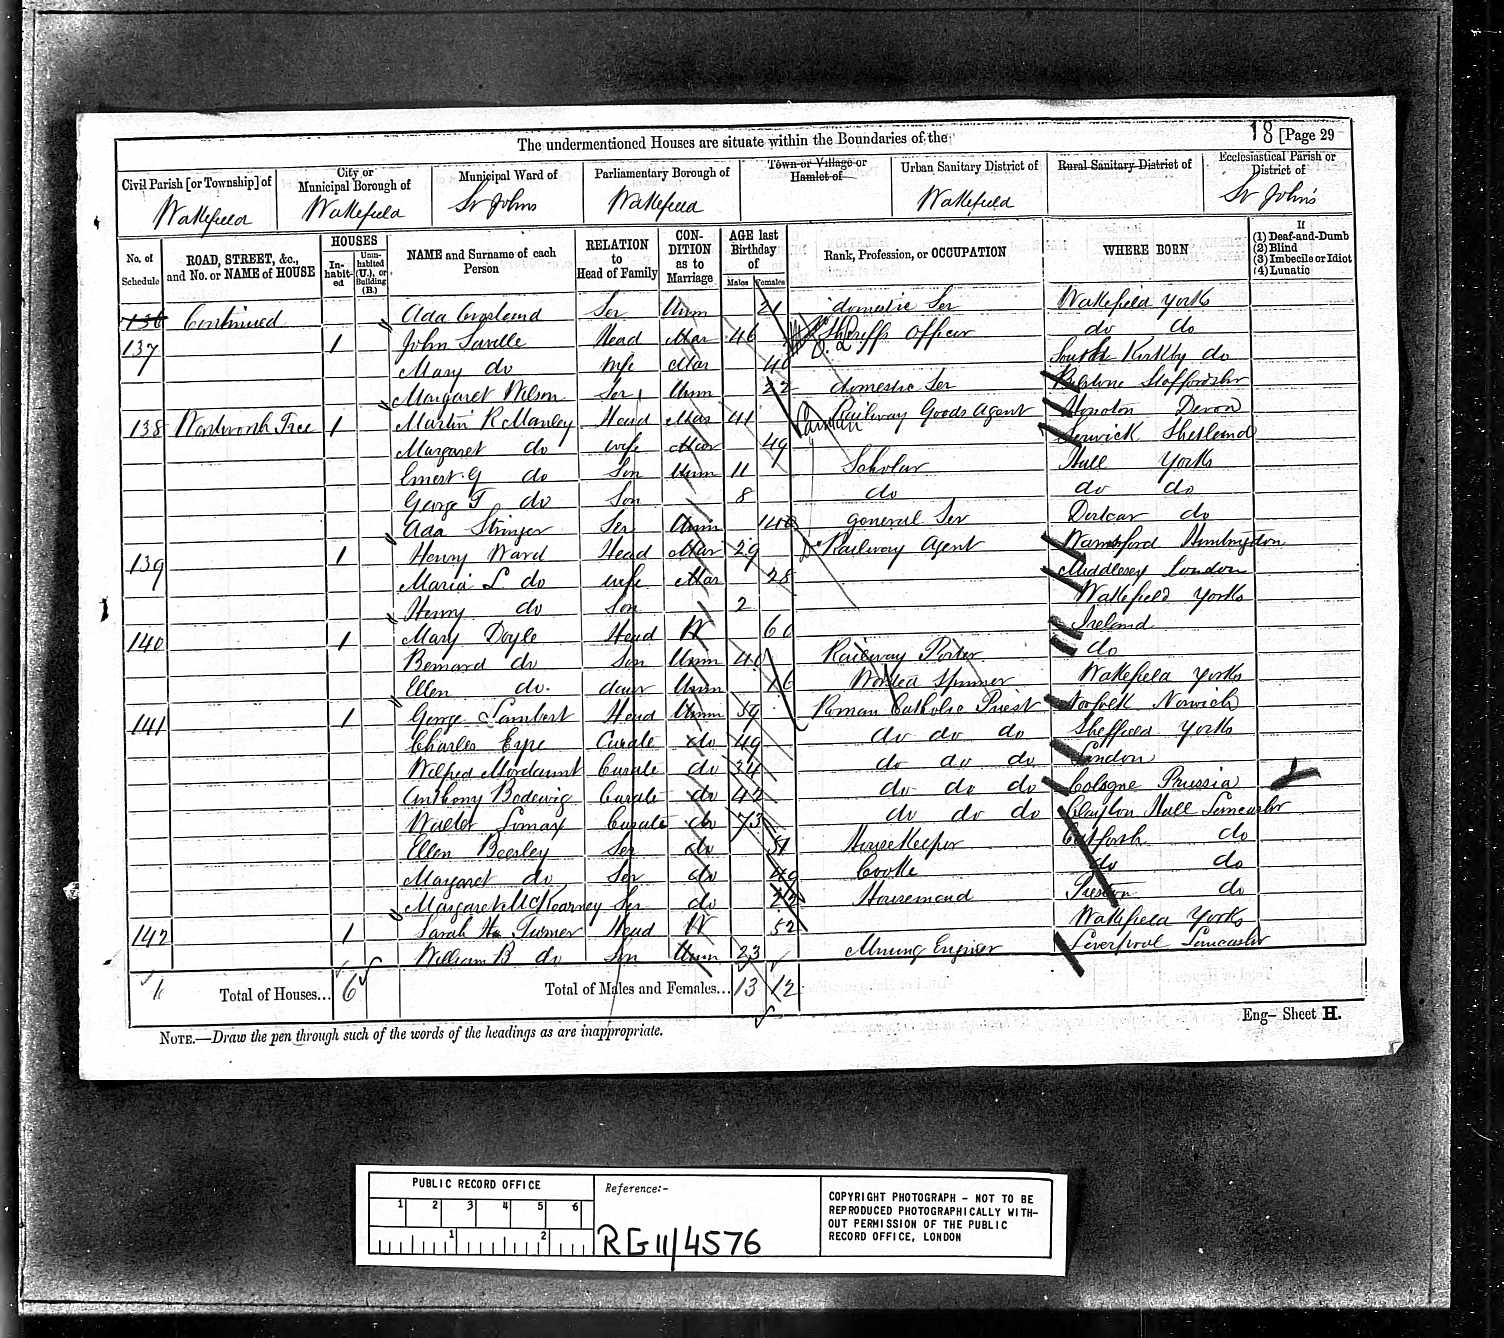 The undermentioned Houses are situate within the Boundaries of the 18 [Page 29
Civil Parish [or Township] of City or Municipal Borough of Municipal Ward of Parliamentary Borough of Town or Village or Hamlet of Urban Sanitary District of Rural Sanitary District of Ecclesiastical Parish or District of
Wakefield Wakefield St Johns Wakefield Wakefield St John's
No. of Schedule ROAD, STREET, &c., and No. or NAME of HOUSE HOUSES Inhabited Uninhabited (U.), or Building (B.) NAME and Surname of each Person RELATION to Head of Family CONDITION as to Marriage AGE last Birthday of Males Females Rank, Profession, or OCCUPATION WHERE BORN If (1) Deaf-and-Dumb (2) Blind (3) Imbecile or Idiot (4) Lunatic
136 Continued Ada Ser Unm 21 domestic Ser Wakefield Yorks
137 1 John Saville Head Mar 46 Sheriffs Officer do do
Mary do Wife Mar 40 South Kirkby do
Margaret Wilson Ser Unm 22 domestic Ser Staffordshr
138 Wentworth Trce 1 Martin R Manley Head Mar 41 Railway Goods Agent Devon
Margaret do wife Mar 49 Lerwick Shetland
Ernest G do Son Unm 11 Scholar Hull Yorks
George T do Son 8 do do do
Ada Stringer Ser Unm general Ser do
139 1 Henry Ward Head Mar 29 Do Railway Agent Wansford Huntingdon
Maria L do wife Mar 28 Middlesex London
Henry do Son 2 Wakefield Yorks
140 1 Mary Doyle Head W 60 Ireland
Bernard do Son Unm 40 Railway Porter do
Ellen do. daur Unm 16 Worsted Spinner Wakefield Yorks
141 1 George Lambert Head Unm 59 Roman Catholic Priest Norfolk Norwich
Charles Eyre Curate do 49 do do do Sheffield Yorks
Wilfred Mordaunt Curate do 34 do do do London
Anthony Bodewig Curate do 42 do do do Cologne Prussia
Walter Lomax Curate do 73 do do do Clayton Hall Lancashr
Ellen Beesley Ser do 51 HouseKeeper Catforth do
Margaret do Ser do 49 Cooke do do
Margaret McKearney Ser do 22 Housemaid Preston do
142 1 Sarah Turner Head W 52 Wakefield Yorks
William B do Son Unm 23 Mining Engineer Liverpool Lancashr
Total of Houses... 6 Total of Males and Females... 13 12
Eng– Sheet H.
NOTE.—Draw the pen through such of the words of the headings as are inappropriate.
PUBLIC RECORD OFFICE
1 2 3 4 5 6
1 2
Reference:-
RG 11/4576
COPYRIGHT PHOTOGRAPH – NOT TO BE
REPRODUCED PHOTOGRAPHICALLY WITH-
OUT PERMISSION OF THE PUBLIC
RECORD OFFICE, LONDON